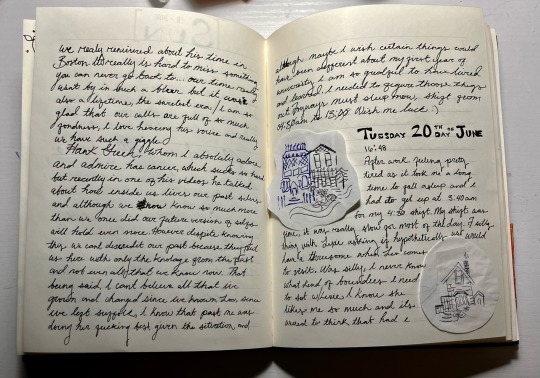 we realy reminised about his time in
Boston. It really is hard to miss something
you can never go back to... our time really
went by in such a bleer but it was
also a lifetime, the sweetest era! I am so
glad that our calls are full of so much
fondness, I love hearing his voice and really
we have such a giggle.
Hank Green, whom I absolutely adore
and admire has cancer, which sucks so hard
but recently in one of his videos he talked
about how inside us lives our past selves
and although we know so much more
than we once did our future version of selfs
will hold even more. However despite knowing
this we cant discredit our past because they
us here with only the knowlage from the past
and not even all that we know now. That
being said, I cant believe all that ive
grown and changed since ive known
we left I know that past me was
doing her best given the situation, and
although maybe I wish certain things would
have been different about my first year of
university I am so grateful to have lived
and learned. I needed to figure those things
out. Anyways must sleep now, shift from
04:30am to 13:00. Wish me luck :)
TUESDAY 20TH DAY OF JUNE
16:48
After work. Feeling pretty
tired as it took me a long
time to fall asleep and I
had to get up at 3:40am
for my 4:30 shift. My shift was
fine, it was really slow for most of the day. A silly
thing with asking if hypothetically we would
have a threesome when came
to visit. Was silly, I never know
what kind of boundries I need
to set w/ I know she
likes me so much and its
weird to think that had I